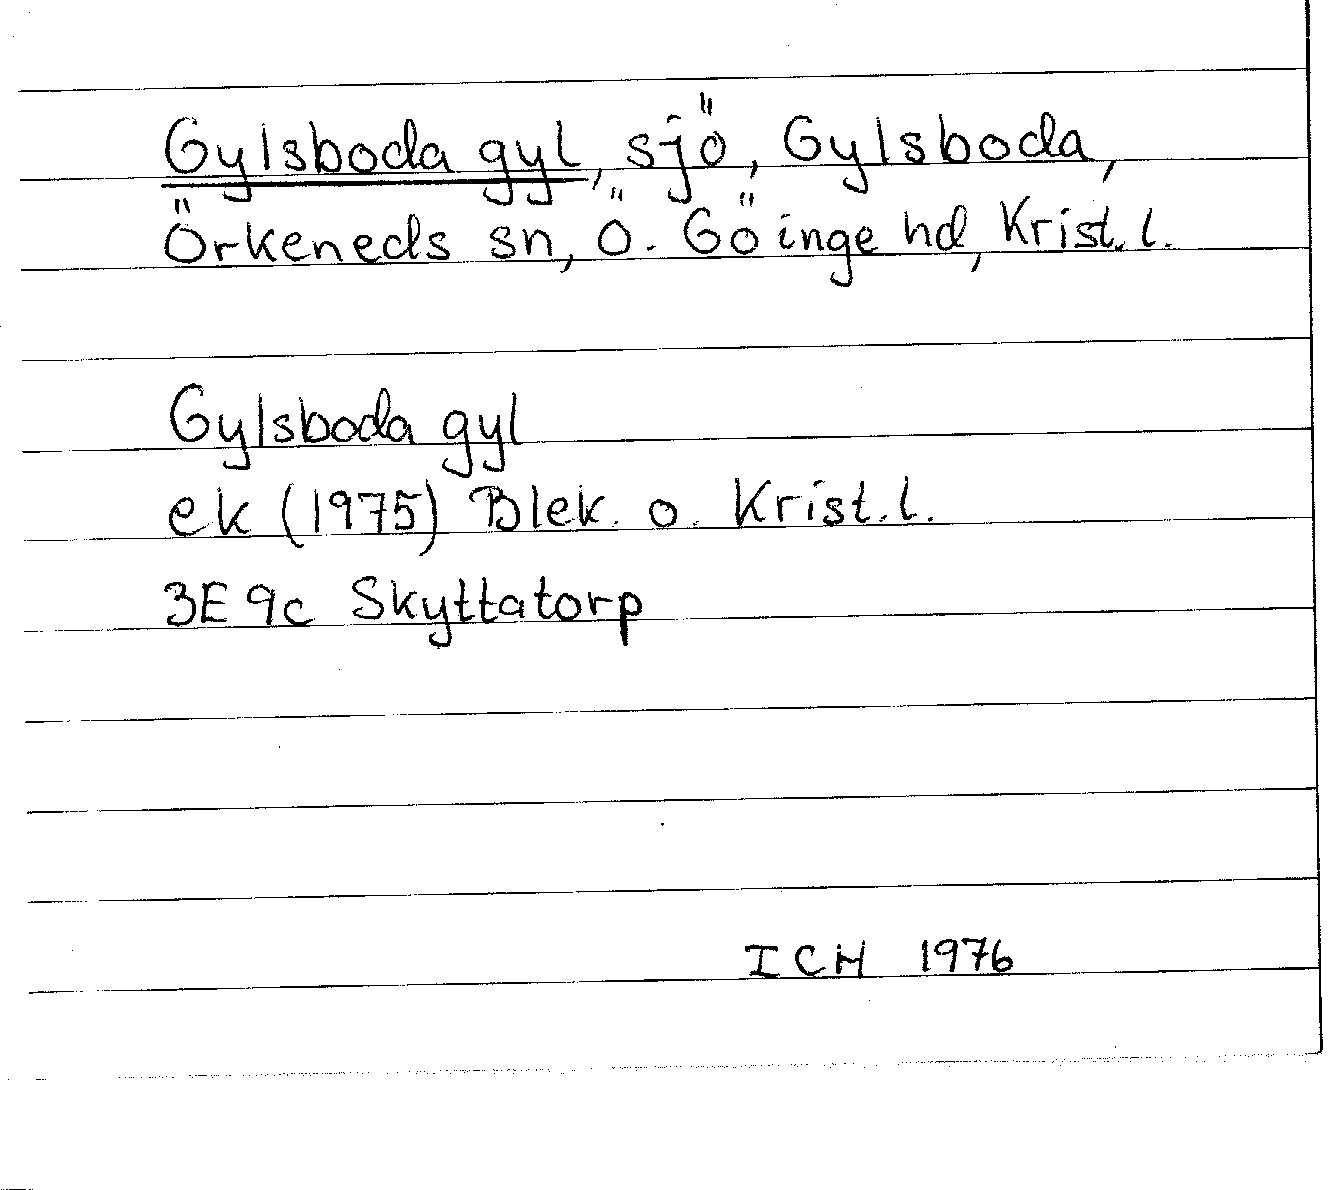 Gylsboda gyl, sjö, Gylsboda,
Örkeneds sn, Ö. Göinge hd, Krist. l.
Gylsboda gyl
ek (1975) Blek. o. Krist. l.
3E 9c Skyttatorp
ICH 1976